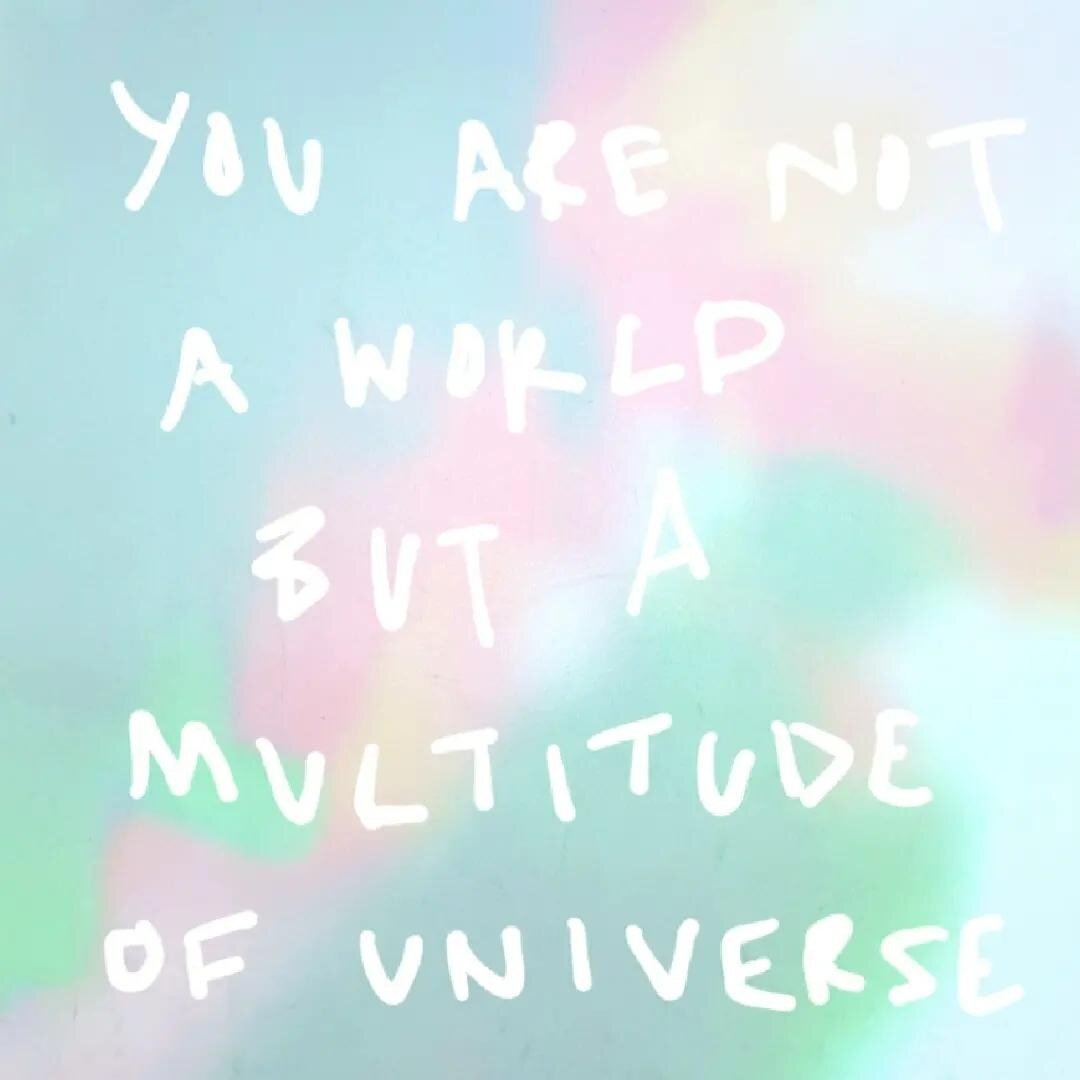 YOU ARE NOT
A WORLD
BUT A
MULTITUDE
OF UNIVERSE